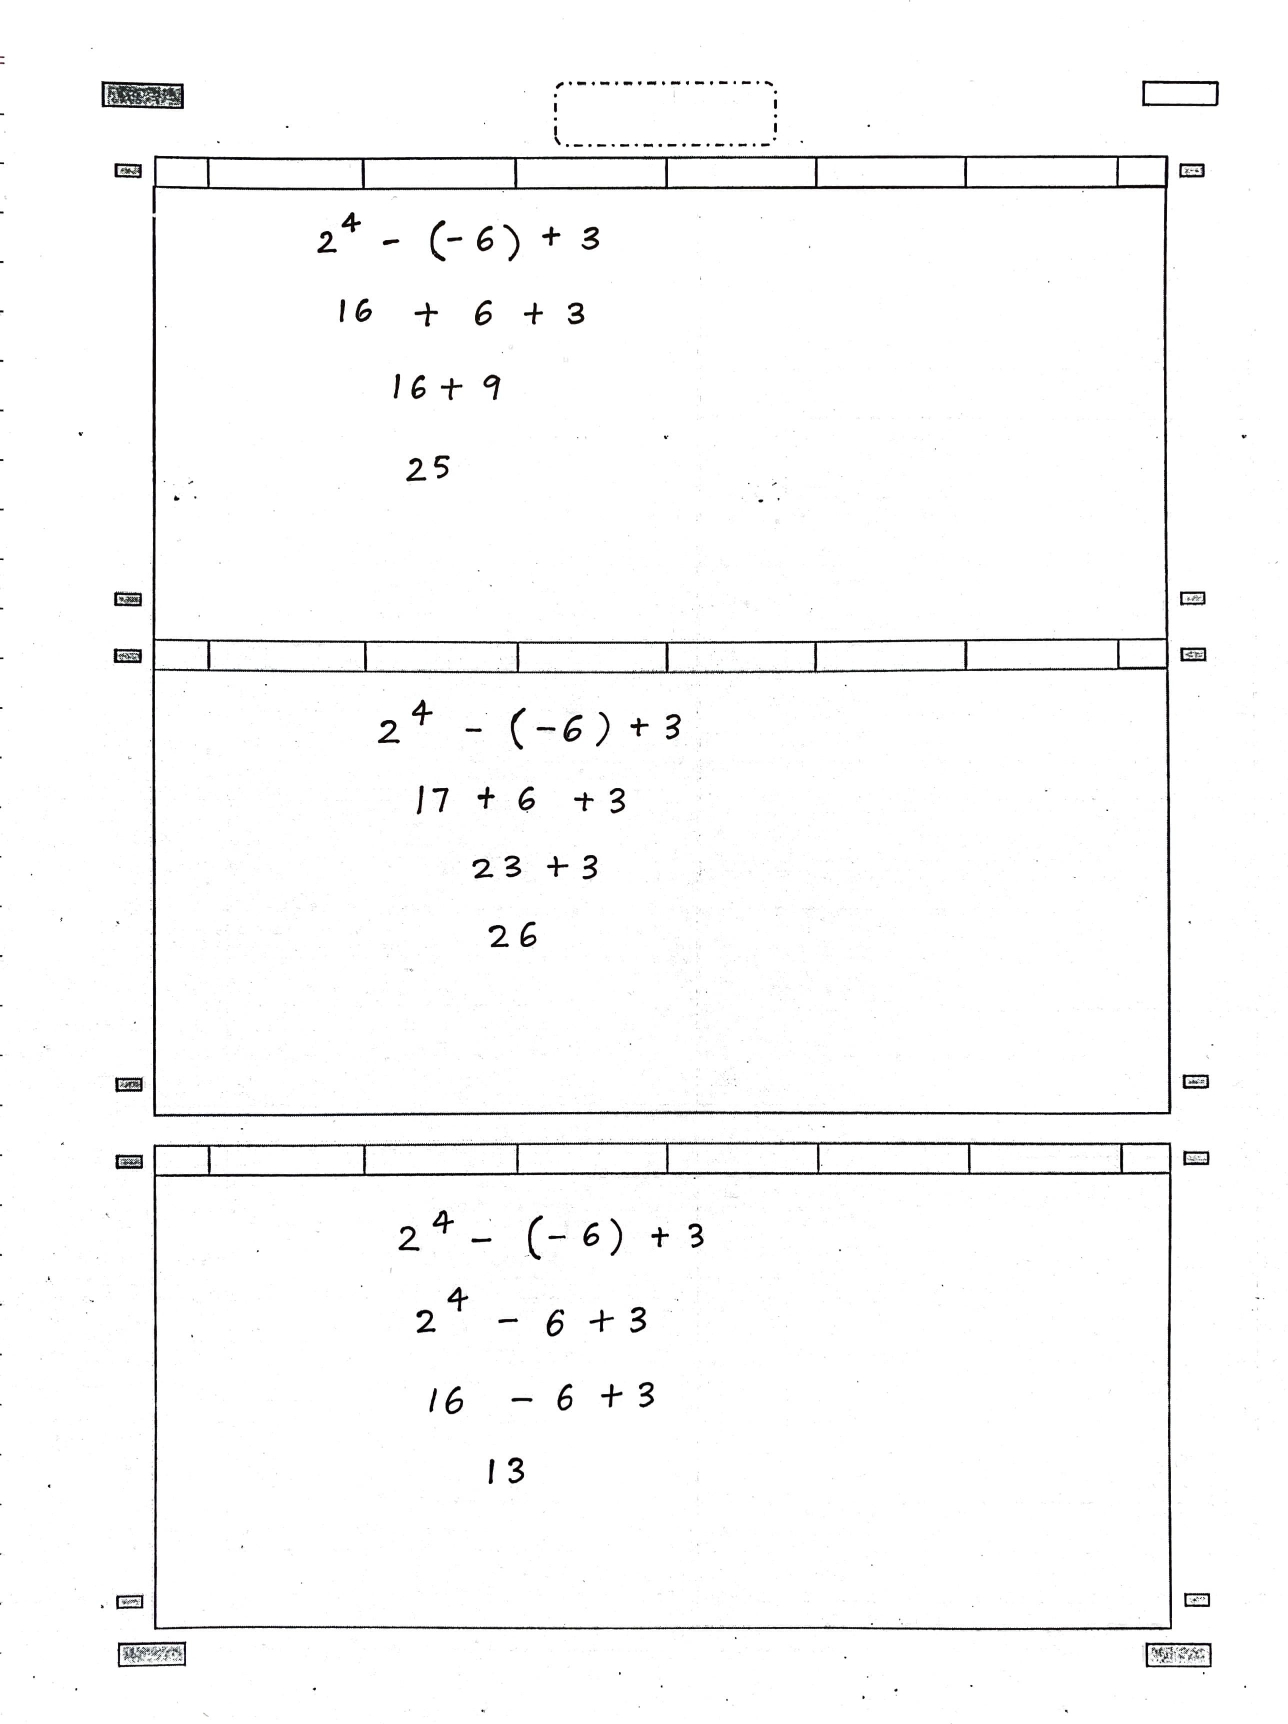 2⁴ - (-6) + 3
16 + 6 + 3
16 + 9
25
2⁴ - (-6) + 3
17 + 6 + 3
23 + 3
26
2⁴ - (-6) + 3
2⁴ - 6 + 3
16 - 6 + 3
13